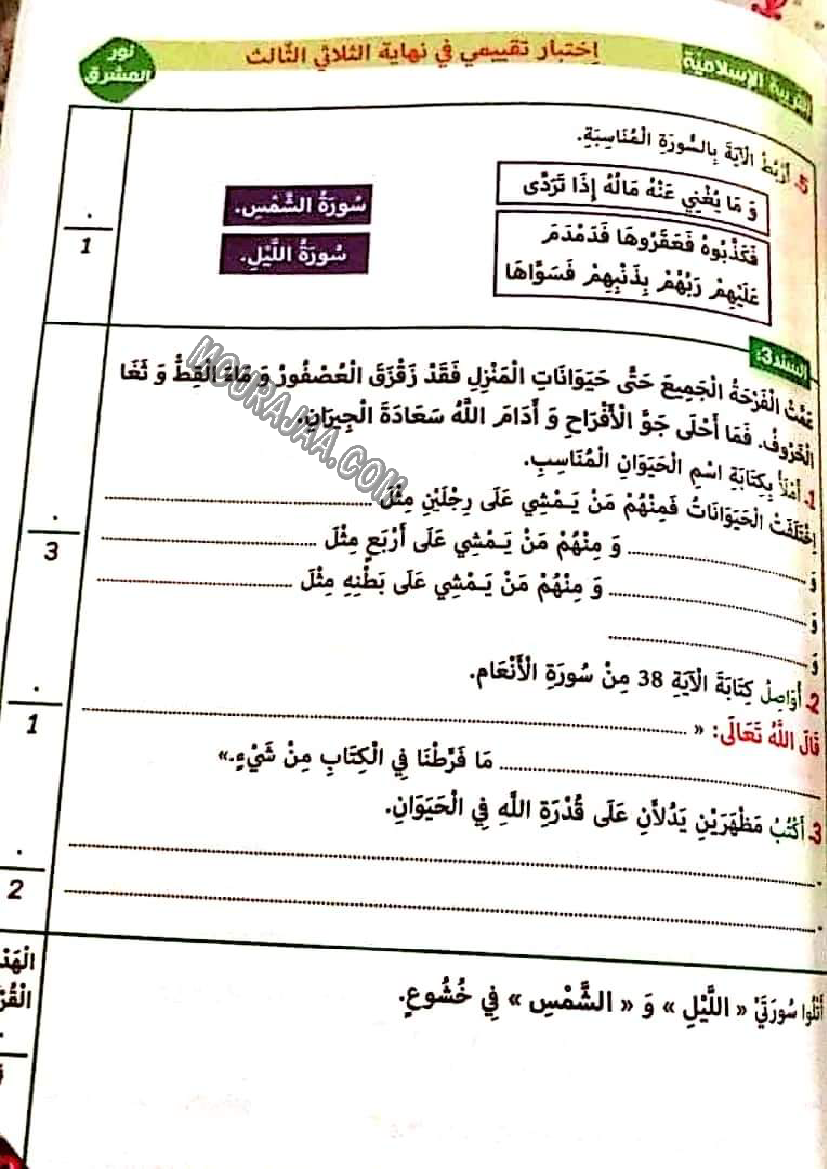 التربية الإسلامية
إختبار تقييمي في نهاية الثلاثي الثالث
نور المشرق
5- أَرْبُطُ الْآيَةَ بِالسُّورَةِ الْمُنَاسِبَةِ.
وَ مَا يُغْنِي عَنْهُ مَالُهُ إِذَا تَرَدَّى
سُورَةُ الشَّمْسِ.
فَكَذَّبُوهُ فَعَقَرُوهَا فَدَمْدَمَ
عَلَيْهِمْ رَبُّهُمْ بِذَنْبِهِمْ فَسَوَّاهَا
سُورَةُ اللَّيْلِ.
1
السند3:
عَمَّتْ الْفَرْحَةُ الْجَمِيعَ حَتَّى حَيَوَانَاتِ الْمَنْزِلِ فَقَدْ زَقْزَقَ الْعُصْفُورُ وَ مَاءَ الْقِطُّ وَ ثَغَا
الْخَرُوفُ. فَمَا أَحْلَى جَوَّ الْأَفْرَاحِ وَ أَدَامَ اللَّهُ سَعَادَةَ الْجِيرَانِ.
MOURAJAA.COM
1. أَمْلَأُ بِكِتَابَةِ اسْمِ الْحَيَوَانِ الْمُنَاسِبِ.
اِخْتَلَفَتْ الْحَيَوَانَاتُ فَمِنْهُمْ مَنْ يَـمْشِي عَلَى رِجْلَيْنِ مِثْلَ ........
وَ ........ وَ مِنْهُمْ مَنْ يَـمْشِي عَلَى أَرْبَعٍ مِثْلَ ........
وَ ........ وَ مِنْهُمْ مَنْ يَـمْشِي عَلَى بَطْنِهِ مِثْلَ ........
وَ ........
3
2. أُوَاصِلُ كِتَابَةَ الْآيَةِ 38 مِنْ سُورَةِ الْأَنْعَام.
قَالَ اللَّهُ تَعَالَى: « ........
........ مَا فَرَّطْنَا فِي الْكِتَابِ مِنْ شَيْءٍ.»
1
3. أَكْتُبُ مَظْهَرَيْنِ يَدُلاَّنِ عَلَى قُدْرَةِ اللَّهِ فِي الْحَيَوَانِ.
2
أَتْلُوا سُورَتَيْ « اللَّيْلِ » وَ « الشَّمْسِ » فِي خُشُوعٍ.